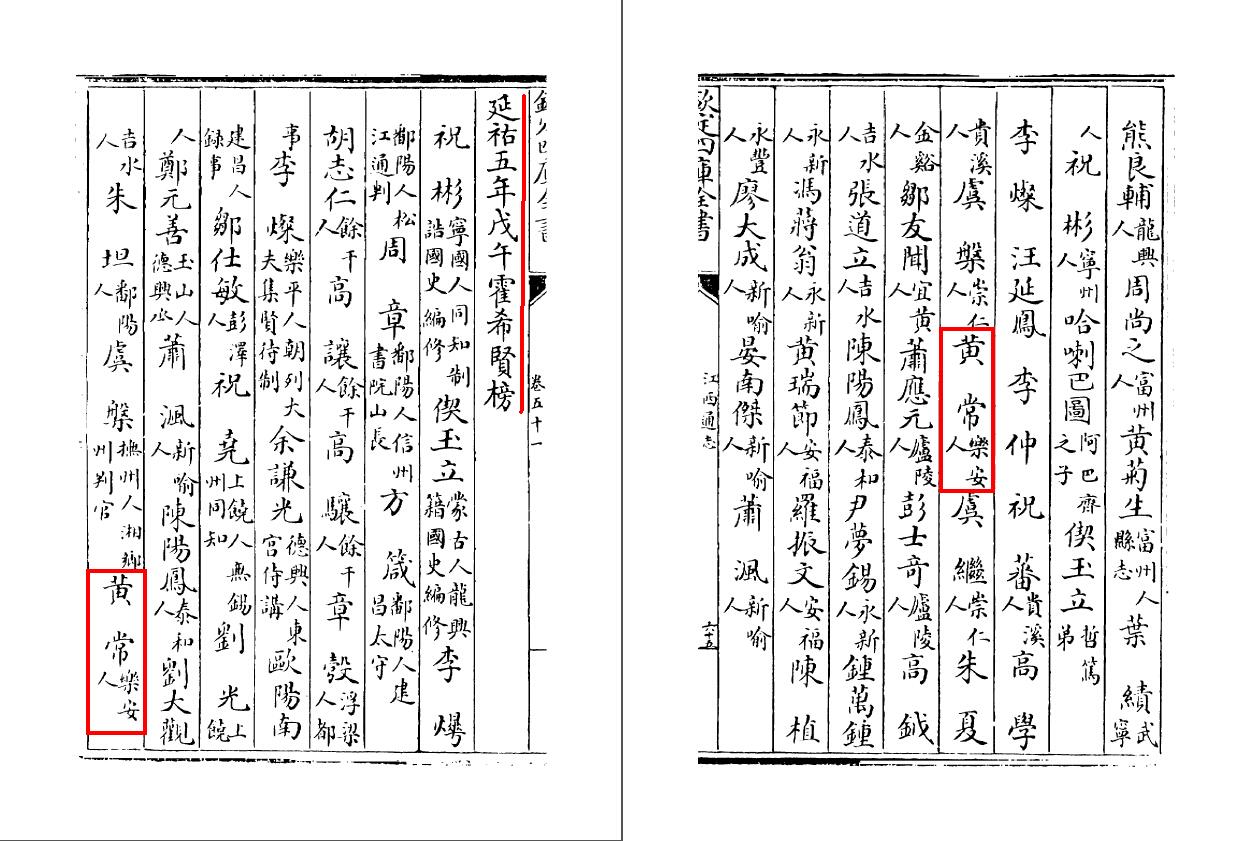 熊良輔龍興人周尚之富州人黄菊生富州人縣志葉績武寧
人祝彬寧州人哈喇巴圖阿巴齊之子偰玉立哲篤弟
李燦汪延鳳李仲祝蕃貴溪人高學
貴溪人虞槃崇仁人黄常樂安人虞繼崇仁人朱夏
金谿人鄒友聞宜黄人蕭應元廬陵人彭士奇廬陵人高鉞
吉水人張道立吉水人陳陽鳳泰和人尹夢錫永新人鍾萬鍾
永新人馮蔣翁永新人黄瑞節安福人羅振文安福人陳植
永豐人廖大成新喻人晏南傑新喻人蕭渢新喻人
欽定四庫全書
江西通志
六十五
卷五十一
延祐五年戊午霍希賢榜
祝彬寧國人同知制誥國史編修偰玉立蒙古人龍興籍國史編修李爗
鄱陽人松江通判周章鄱陽人信州書院山長方箴鄱陽人建昌太守
胡志仁餘干人高讓餘干人高驤餘干人章瑴浮梁人都
事李燦樂平人朝列大夫集賢待制余謙光德興人東宫侍講歐陽南
建昌人録事鄒仕敏彭澤人祝堯上饒人無錫州同知劉光上饒
人鄭元善玉山人德興丞蕭渢新喻人陳陽鳳泰和人劉大觀
吉水人朱坦鄱陽人虞槃撫州人湘鄉州判官黄常樂安人